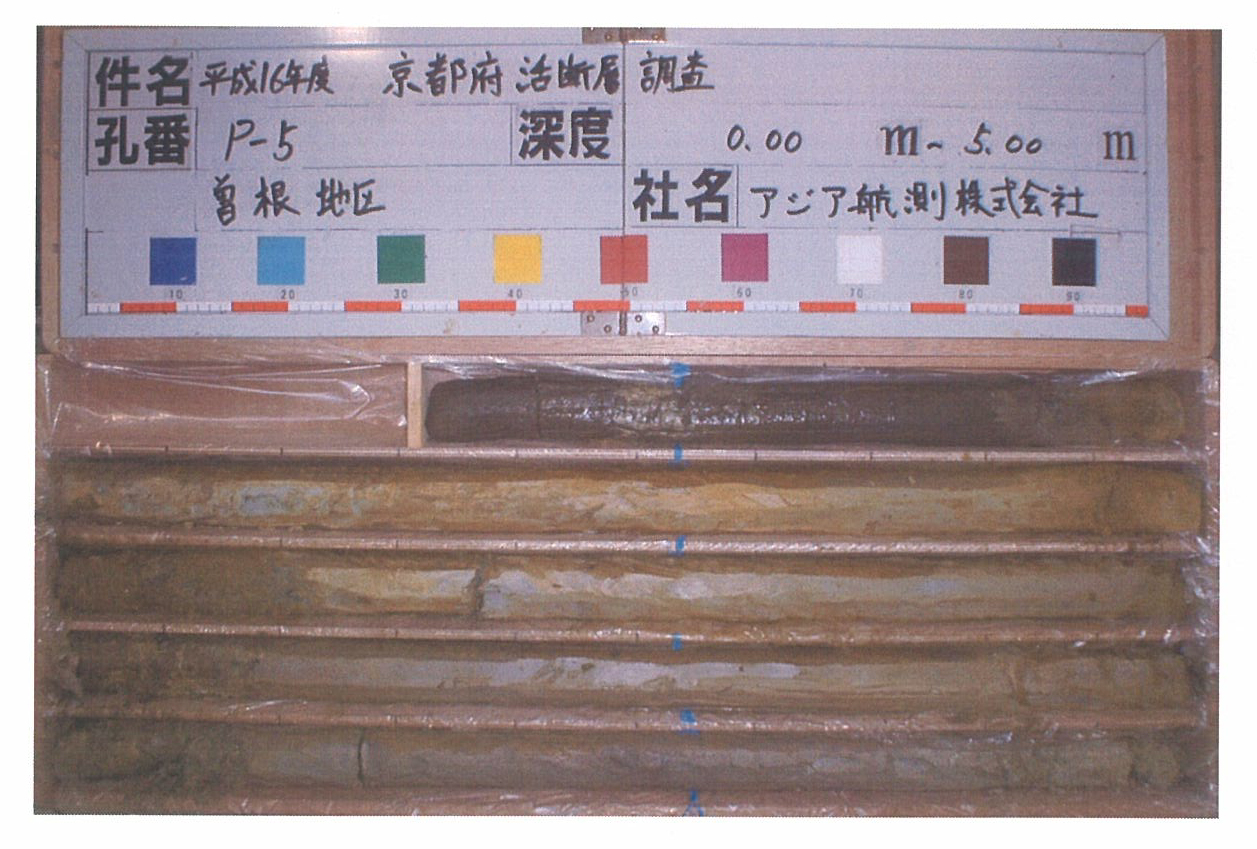 件名 平成16年度 京都府活断層調査
孔番 P-5 深度 0.00 m~5.00 m
曽根地区 社名 アジア航測株式会社
10 20 30 40 50 60 70 80 90